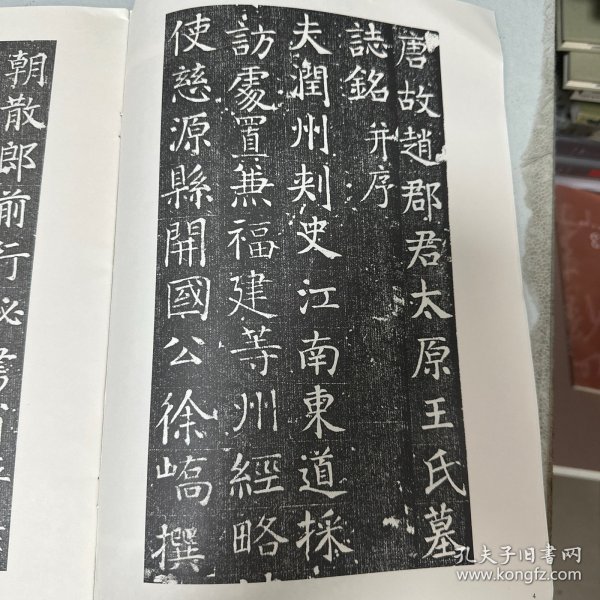 唐故趙郡君太原王氏墓
誌銘并序
夫潤州刾史江南東道採
訪處置兼福建等州經略
使慈源縣開國公徐嶠撰
朝散郎前行祕書
4
孔夫子旧书网
www.kongfz.com